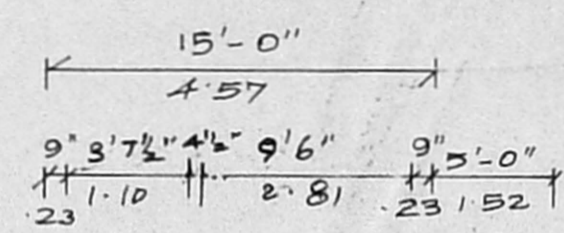 15'-0"
4.57
9" 3'7½" 4½" 9'6" 9" 5'-0"
.23 1.10 2.81 .23 1.52